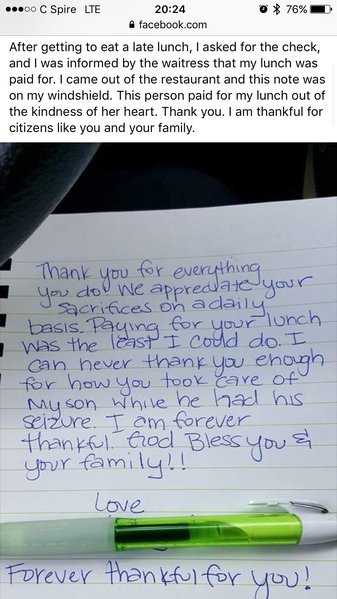 C Spire LTE 20:24 76%
facebook.com
After getting to eat a late lunch, I asked for the check,
and I was informed by the waitress that my lunch was
paid for. I came out of the restaurant and this note was
on my windshield. This person paid for my lunch out of
the kindness of her heart. Thank you. I am thankful for
citizens like you and your family.
Thank you for everything
you do! We appreciate your
sacrifices on a daily
basis. Paying for your lunch
was the least I could do. I
can never thank you enough
for how you took care of
my son while he had his
seizure. I am forever
thankful. God Bless you &
your family!!
Love
Forever thankful for you!